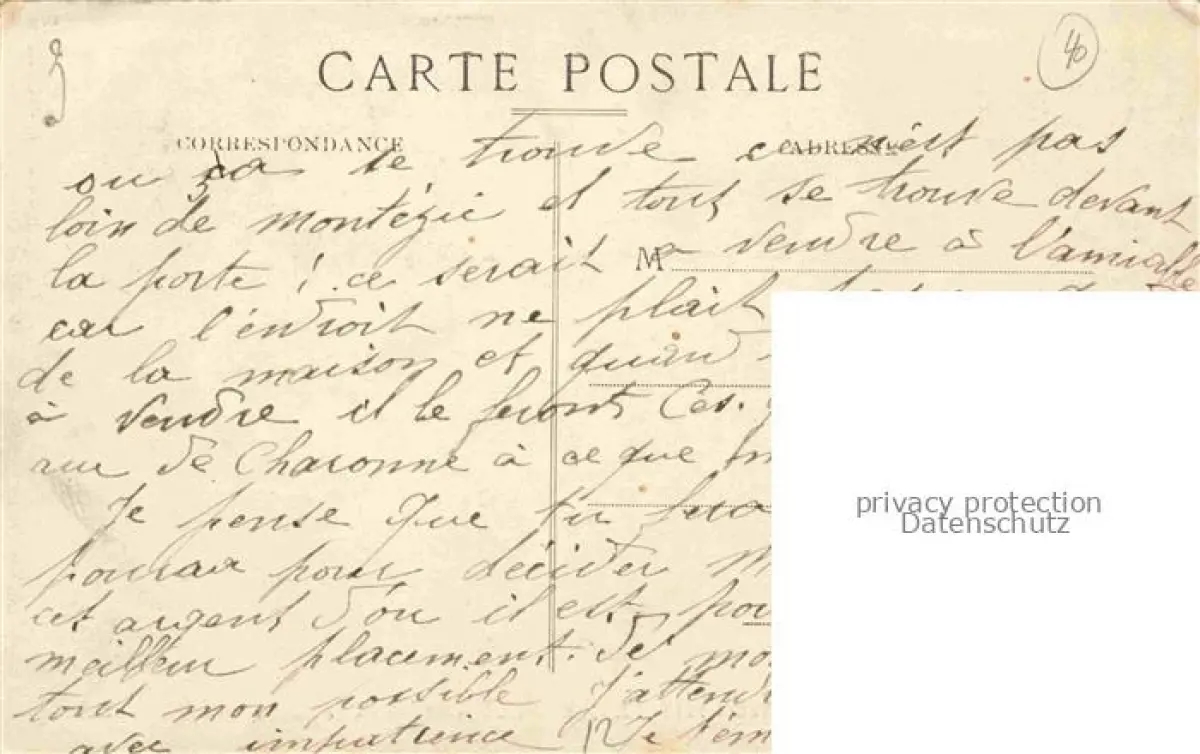 40
CARTE POSTALE
CORRESPONDANCE
ADRESSE
ou ça se trouve ce n'est pas
loin de montézic et tout se trouve devant
la porte ! ce serait a vendre à l'amiable
M
car l'endroit ne plait
de la maison et quand
à vendre il le feront Ces.
rue de Charonne à ce que
Je pense que tu
pour décider
cet argent d'ou il est pou
meilleur placement. De mo
tout mon possible J'attend
avec impatience Je t'em
privacy protection
Datenschutz